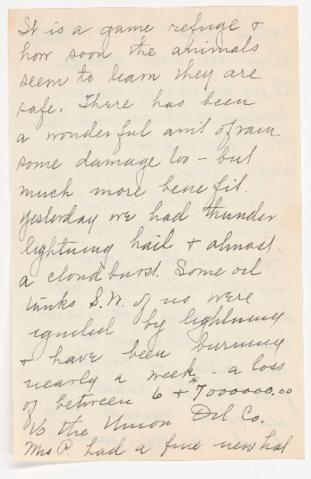 It is a game refuge &
how soon the animals
seem to learn they are
safe. There has been
a wonderful am't of rain
some damage too - but
much more benefit.
Yesterday we had thunder
lightning hail & almost
a cloud burst. Some oil
tanks S.W. of us were
ignited by lightning
& have been burning
nearly a week - a loss
of between 6 & 7000000.00
to the Union Oil Co.
Mrs P. had a fine new hat